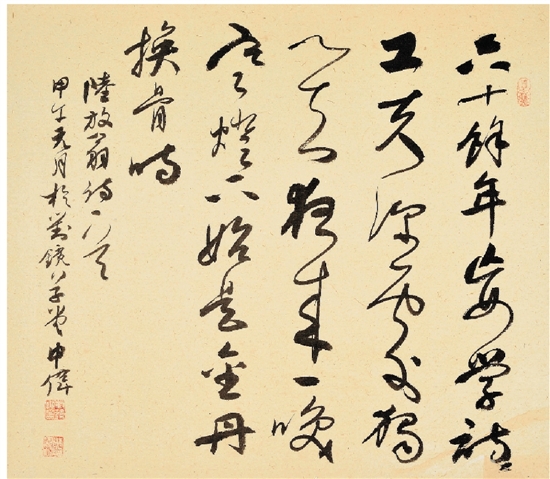 六十餘年妄學詩
工夫深處獨
心知夜來一咲
寒燈下始是金丹
換骨時
陸放翁詩一首
甲午元月於鏡子堂申偉